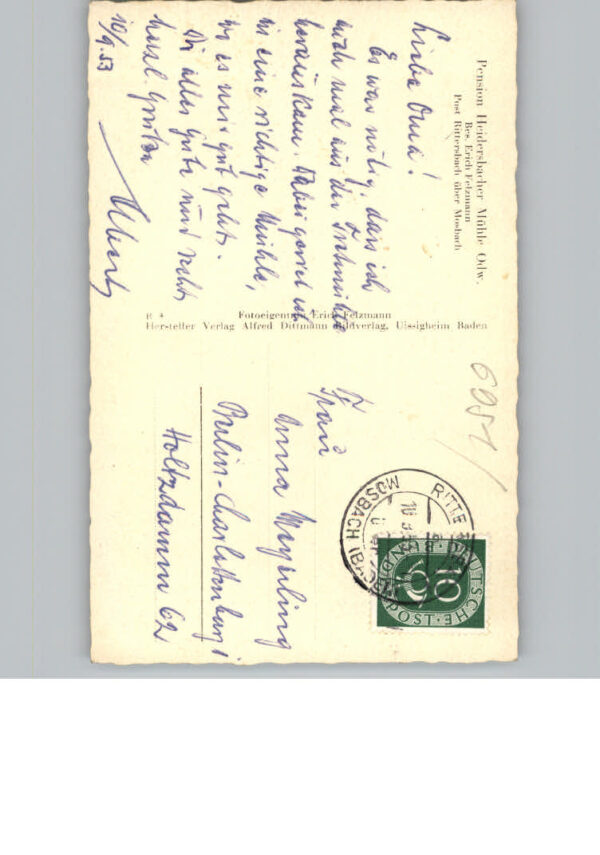 Pension Heidersbacher Mühle Odw.
Bes. Erich Felzmann
Post Rittersbach über Mosbach
Liebe Oma!
Es war nötig, dass ich
mich mal aus der
herauskam. Dabei geriet ich
in eine richtige Mühle,
wo es mir gut geht.
Dir alles Gute und recht
herzl. Grüße
10/9.53
E 4
Fotoeigentum Erich Felzmann
Hersteller Verlag Alfred Dittmann Bildverlag, Uissigheim Baden
6951/
Frau
Anna
Berlin-Charlottenburg 1
Holtzdamm 62
RITTE
MOSBACH (BADEN)
DEUTSCHE
BUNDESPOST
10